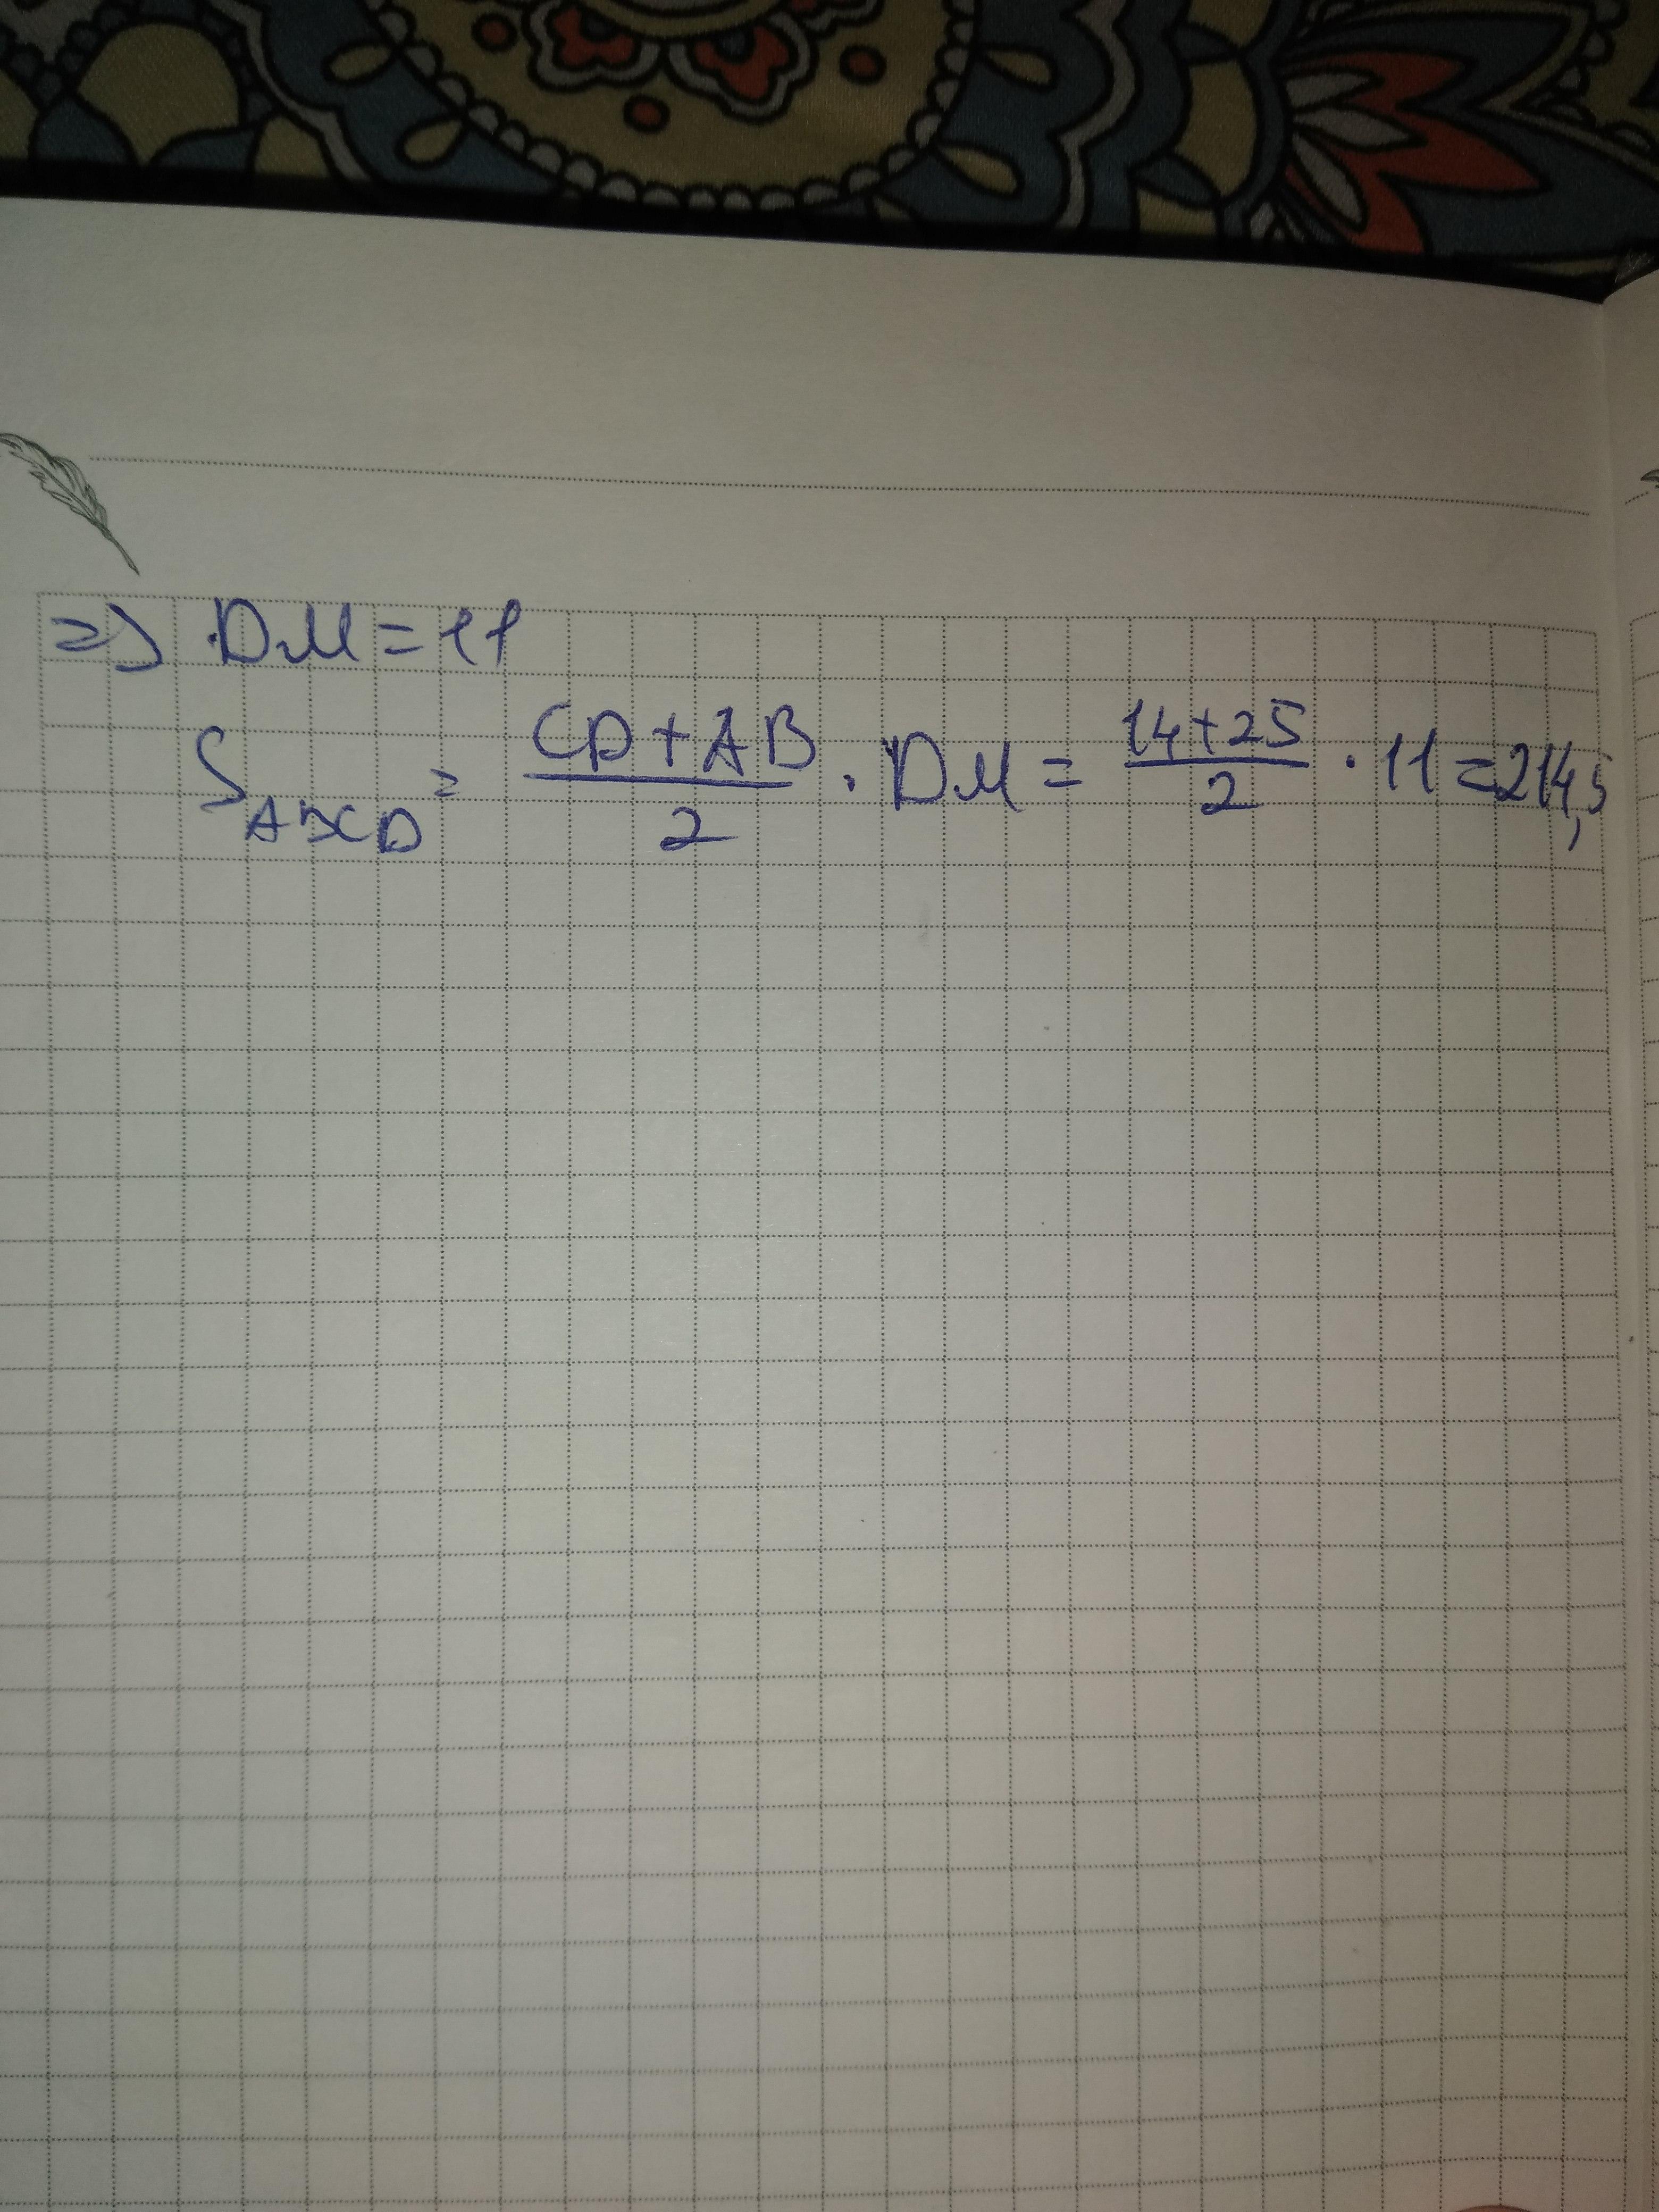 => DM = 11
S_ABCD = (CD + AB)/2 · DM = (14+25)/2 · 11 = 214,5